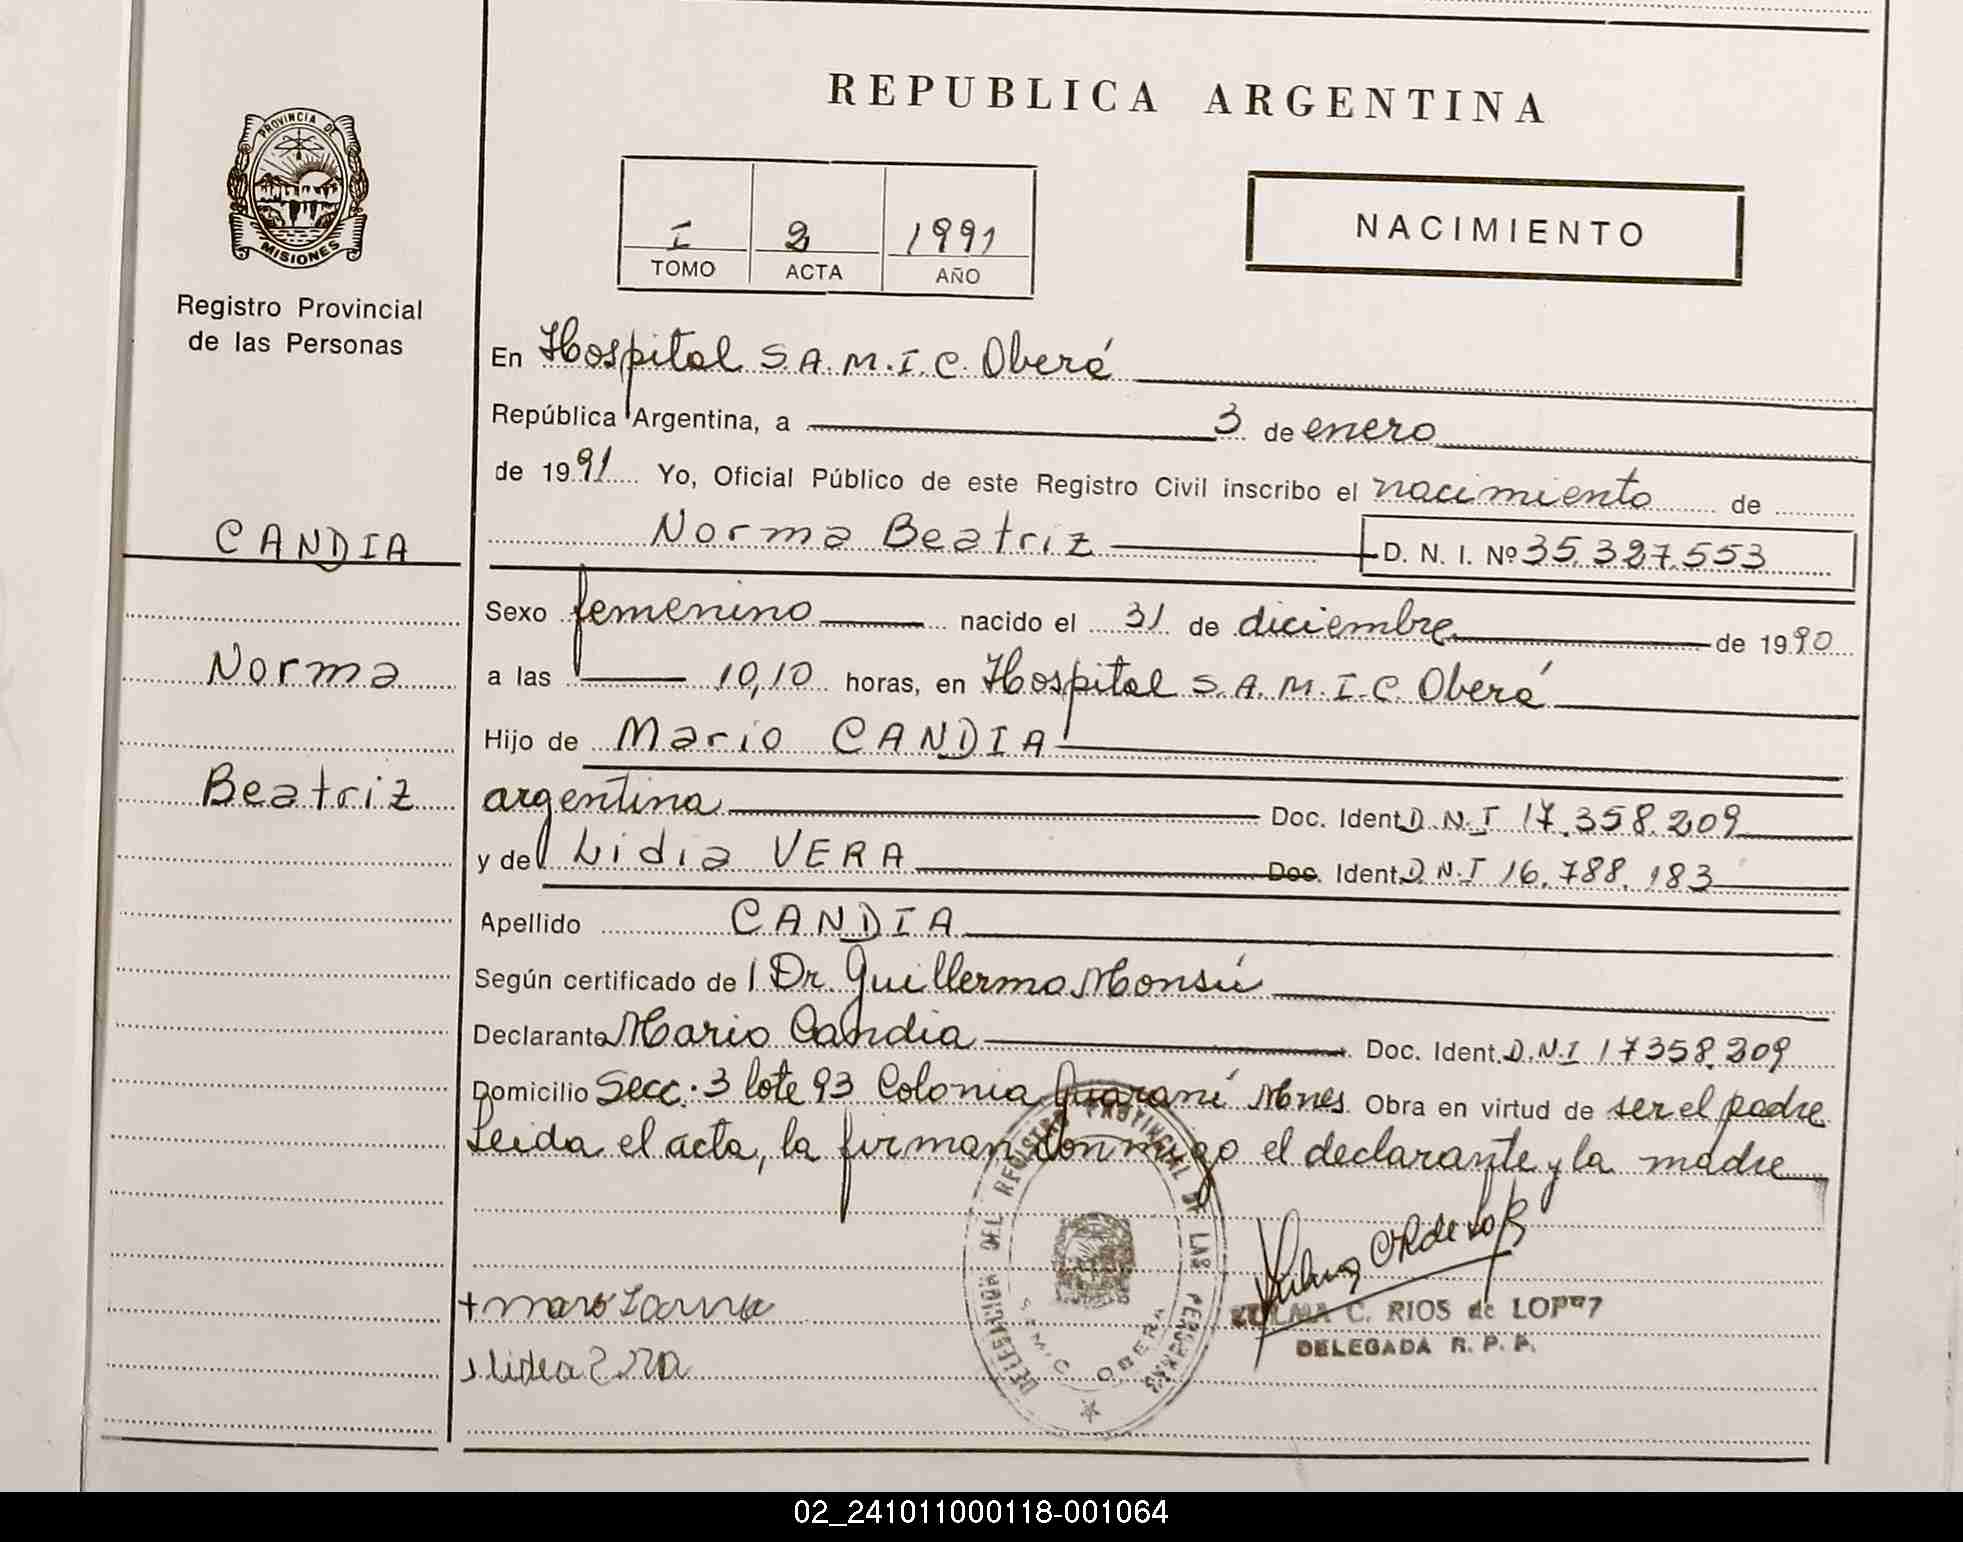 REPUBLICA ARGENTINA
PROVINCIA DE
MISIONES
Registro Provincial
de las Personas
I 2 1991
TOMO ACTA AÑO
NACIMIENTO
CANDIA
Norma
Beatriz
En Hospital S.A.M.I.C. Oberá
República Argentina, a 3 de enero
de 1991 Yo, Oficial Público de este Registro Civil inscribo el nacimiento de
Norma Beatriz D. N. I. Nº 35.327.553
Sexo femenino nacido el 31 de diciembre de 1990
a las 10,10 horas, en Hospital S.A.M.I.C. Oberá
Hijo de Mario CANDIA
argentina Doc. Ident. D.N.I 17.358.209
y de Lidia VERA Doc. Ident. D.N.I 16.788.183
Apellido CANDIA
Según certificado de l Dr. Guillermo Monsú
Declarante Mario Candia Doc. Ident. D.N.I 17358.209
Domicilio Secc. 3 lote 93 Colonia Guaraní Mnes. Obra en virtud de ser el padre
Leida el acta, la firman conmigo el declarante y la madre
DELEGACION DEL REGISTRO PROVINCIAL DE LAS PERSONAS
OBERA
ZULMA C. RIOS de LOPEZ
DELEGADA R. P. P.
02_241011000118-001064